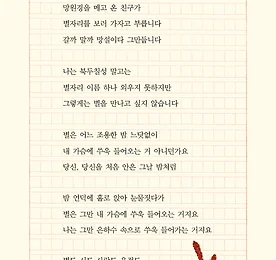 망원경을 메고 온 친구가
별자리를 보러 가자고 부릅니다
갈까 말까 망설이다 그만둡니다
나는 북두칠성 말고는
별자리 이름 하나 외우지 못하지만
그렇게는 별을 만나고 싶지 않습니다
별은 어느 조용한 밤 느닷없이
내 가슴에 쭈욱 들어오는 거 아니던가요
당신, 당신을 처음 안은 그날 밤처럼
밤 언덕에 홀로 앉아 눈물짓다가
별은 그만 내 가슴에 쭈욱 들어오는 거지요
나는 그만 은하수 속으로 쭈욱 들어가는 거지요